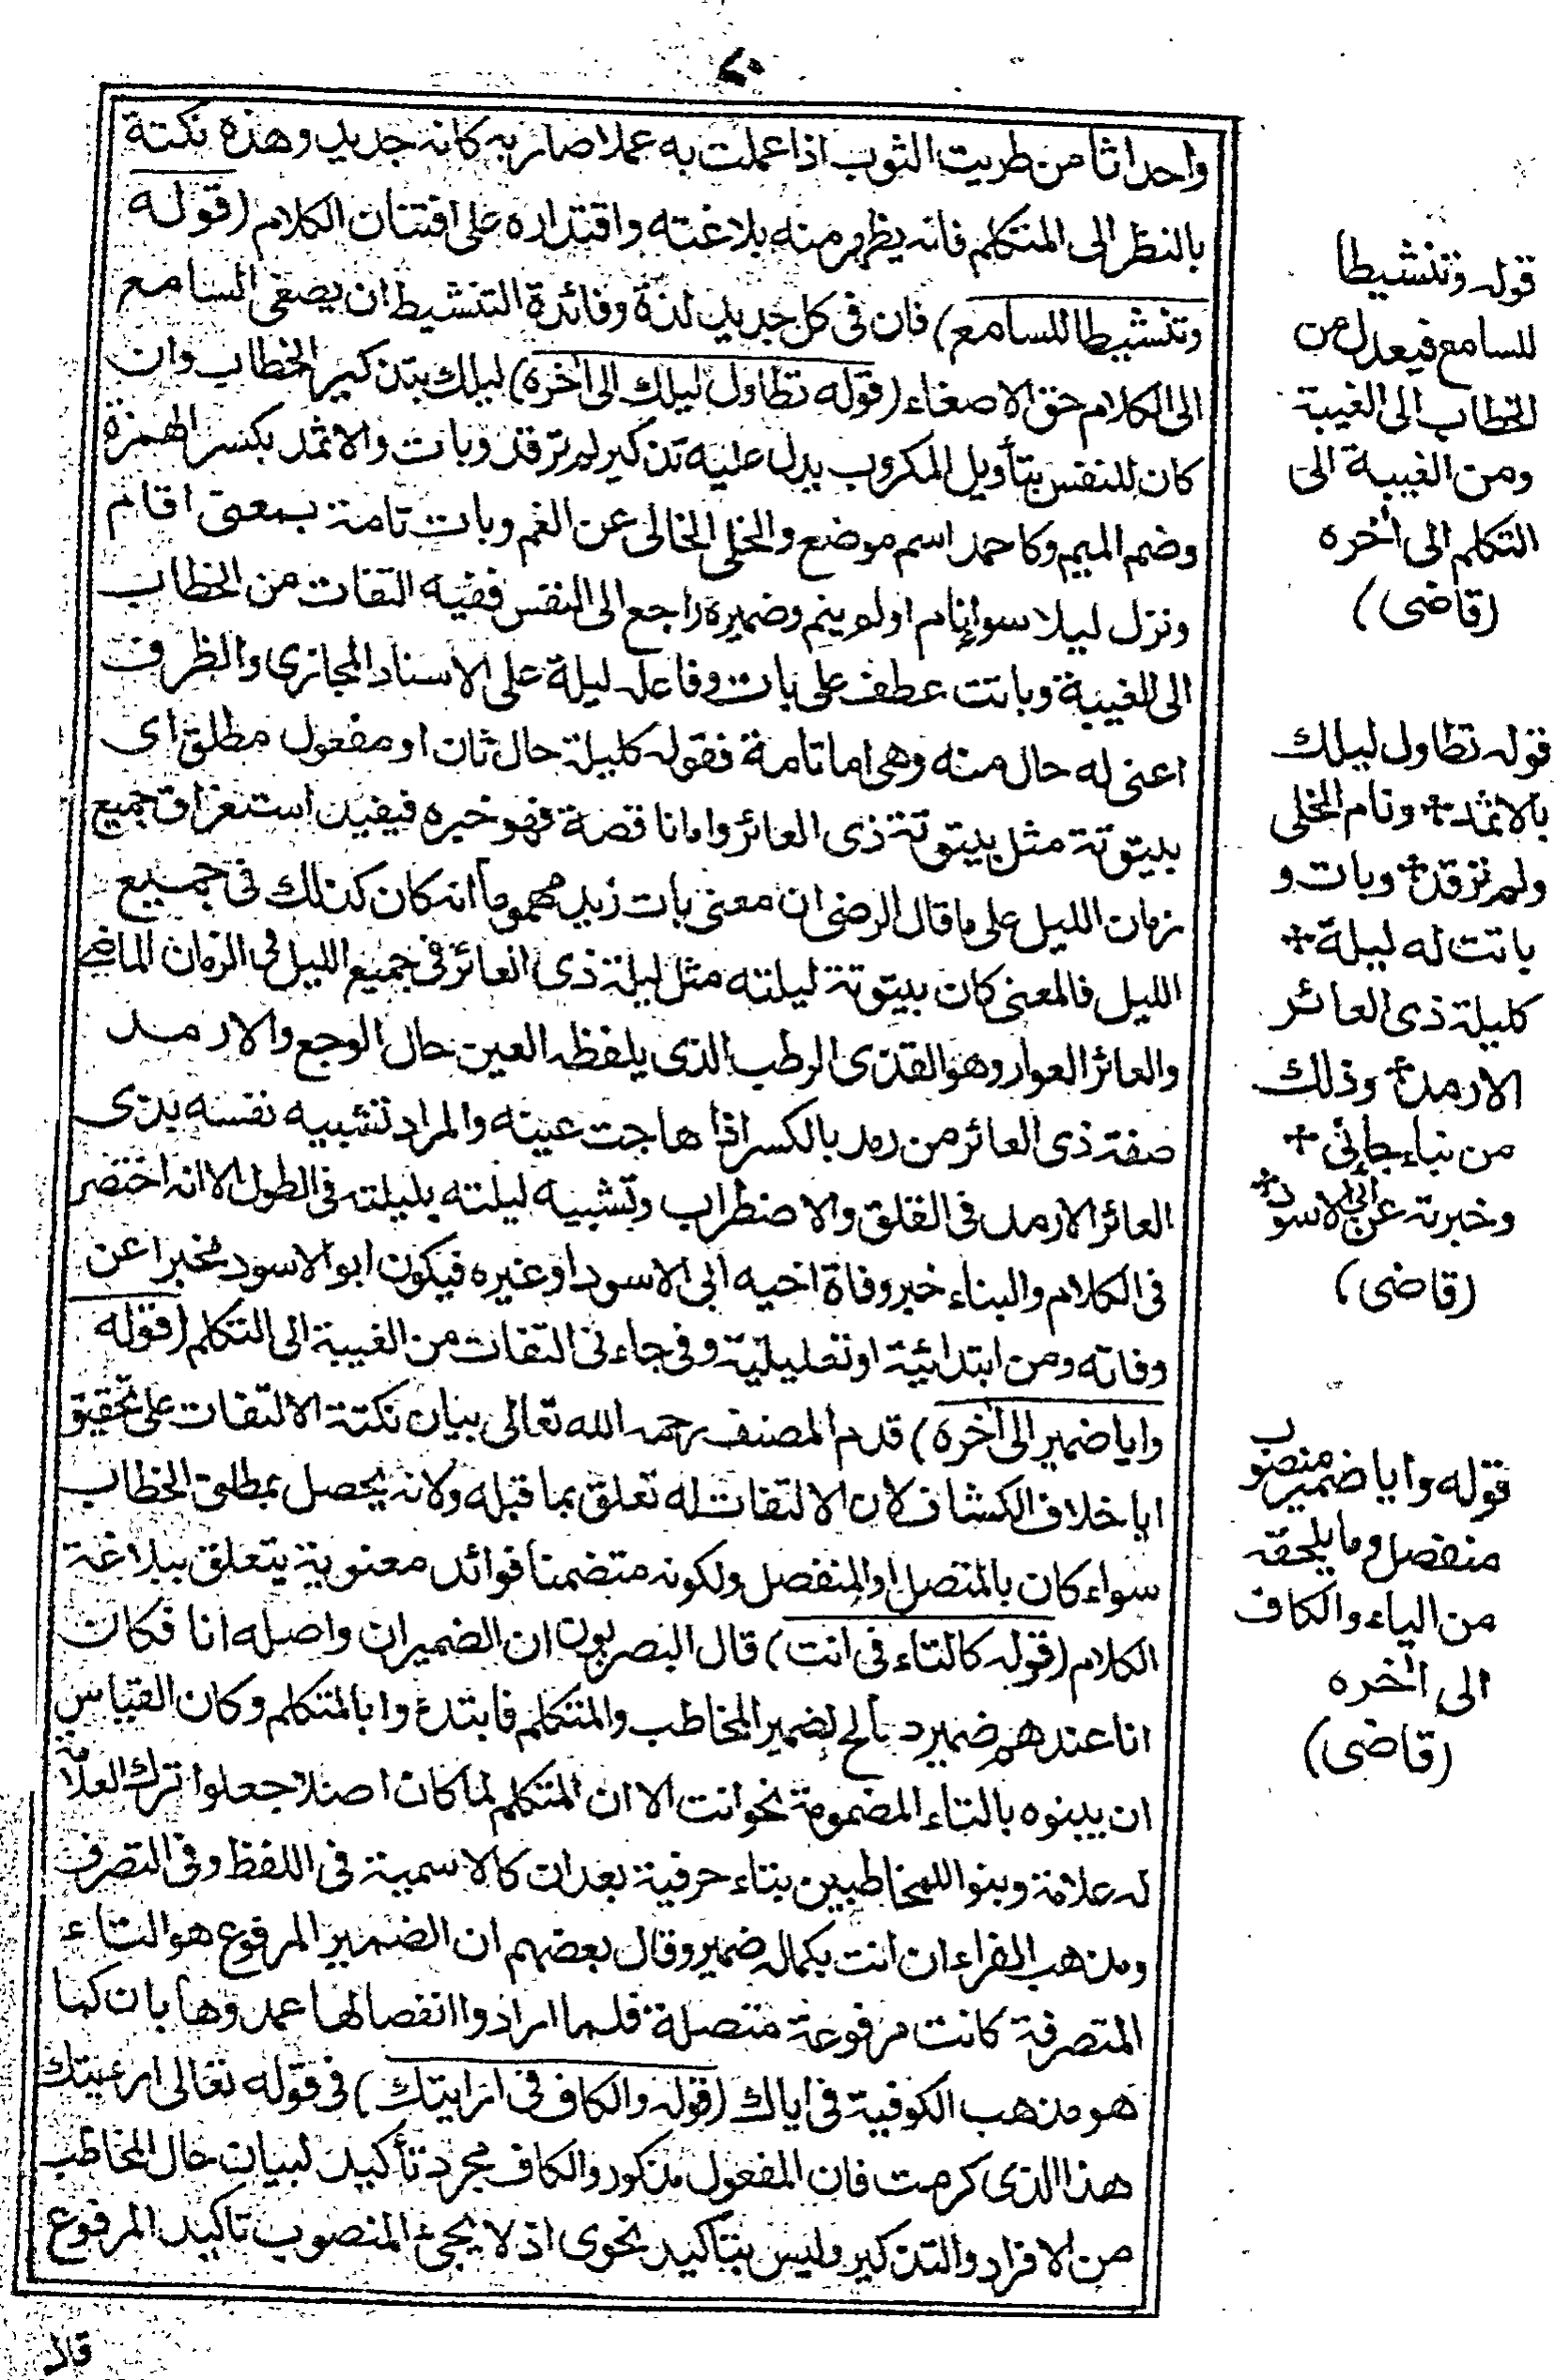 واحداثا من طريت الثوب اذا عملت به عملا صار به كانه جديد وهذه نكتة
بالنظر الى المتكلم فانه يظهر منه بلاغته واقتداره على افتنان الكلام (قوله
وتنشيطا للسامع) فان فى كل جديد لذة وفائدة التنشيط ان يصغى السامع
الى الكلام حق الاصغاء (قوله تطاول ليلك الى آخره) ليلك بتذكير الخطاب وان
كان للنفس بتأويل المكروب يدل عليه تذكير لم ترقد وبات والاثمد بكسر الهمزة
وضم الميم وكاحمد اسم موضع والخلى الخالى عن الغم وبات تامة بمعنى اقام
ونزل ليلا سواء نام او لم ينم وضميره راجع الى النفس ففيه التفات من الخطاب
الى الغيبة وباتت عطف على بات وفاعله ليلة على الاسناد المجازى والظرف
اعنى له حال منه وهى اما تامة فقوله كليلة حال ثان او مفعول مطلق اى
بيتوتة مثل بيتوتة ذى العائر واما ناقصة فهو خبره فيفيد استغراق جميع
زمان الليل على ما قال الرضى ان معنى بات زيد مهموما انه كان كذلك فى جميع
الليل فالمعنى كان بيتوتة ليلته مثل ليلة ذى العائر فى جميع الليل فى الزمان الماضى
والعائر العوار وهو القذى الرطب الذى يلفظه العين حال الوجع والارمد
صفة ذى العائر من رمد بالكسر اذا هاجت عينه والمراد تشبيه نفسه بذى
العائر الارمد فى القلق والاضطراب وتشبيه ليلته بليلته فى الطول الا انه اختصر
فى الكلام والبناء خبر وفاة اخيه ابى الاسود او غيره فيكون ابو الاسود مخبرا عن
وفاته ومن ابتدائية او تعليلية وفى جاءنى التفات من الغيبة الى التكلم (قوله
وايا ضمير الى آخره) قدم المصنف رحمه الله تعالى بيان نكتة الالتفات على تحقيق
ايا خلاف الكشاف لان الالتفات له تعلق بما قبله ولانه يحصل بمطلق الخطاب
سواء كان بالمتصل او المنفصل ولكونه متضمنا فوائد معنوية يتعلق ببلاغة
الكلام (قوله كالتاء فى انت) قال البصريون ان الضمير ان واصله انا فكان
انا عندهم ضمير صالح لضمير المخاطب والمتكلم فابتدءوا بالمتكلم وكان القياس
ان يبنوه بالتاء المضمومة نحو انت الا ان المتكلم لما كان اصلا جعلوا ترك العلامة
له علامة وبنوا للمخاطبين بتاء حرفية بعد ان كالاسمية فى اللفظ وفى التصرف
ومذهب الفراء ان انت بكماله ضمير وقال بعضهم ان الضمير المرفوع هو التاء
المتصرفة كانت مرفوعة متصلة فلما ارادوا انفصالها عمدوها بان كما
هو مذهب الكوفية فى اياك (قوله والكاف فى ارايتك) فى قوله تعالى ارءيتك
هذا الذى كرمت فان المفعول مذكور والكاف مجرد تأكيد لبيان حال المخاطب
من الافراد والتذكير وليس بتأكيد نحوى اذ لا يجئ المنصوب تاكيد المرفوع
قال
قوله وتنشيطا
للسامع فيعدل من
الخطاب الى الغيبة
ومن الغيبة الى
التكلم الى آخره
(قاضى)
قوله تطاول ليلك
بالاثمد + ونام الخلى
ولم ترقد + وبات و
باتت له ليلة +
كليلة ذى العائر
الارمد + وذلك
من نباء جاءنى +
وخبرته عن ابى الاسود +
(قاضى)
قوله وايا ضمير منصوب
منفصل وما يلحقه
من الياء والكاف
الى آخره
(قاضى)